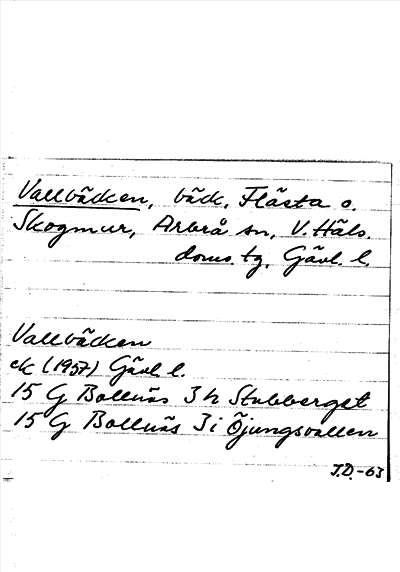 Vallbäcken, bäck, Flästa o.
Skogmur, Arbrå sn, V. Häls.
doms. tg, Gävl. l.
Vallbäcken
ek (1957) Gävl. l.
15 G Bollnäs 3 h Stubberget
15 G Bollnäs 3 i Öjungsvallen
J.D.-63